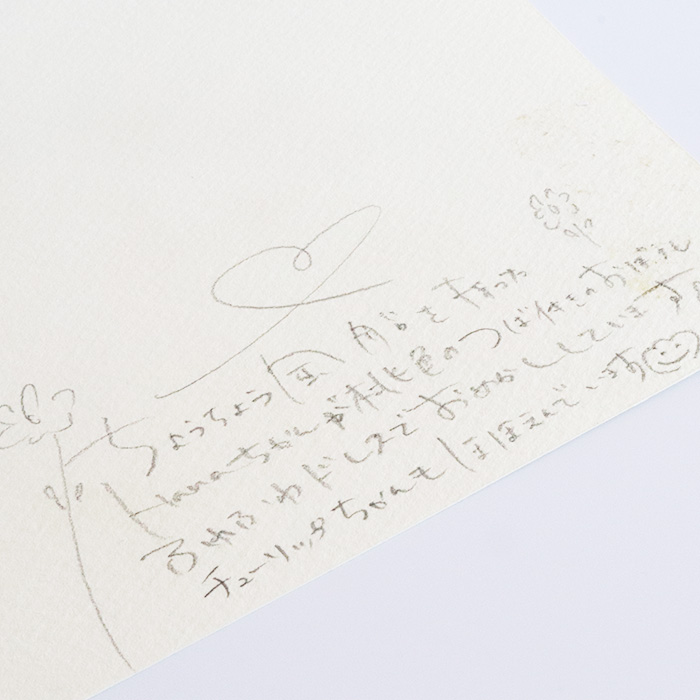 ちょうちょう を持った
Hanaちゃんが桃色のつば付きの
ふわふわドレスでおめかししています
チューリップちゃんもほほえんでいます